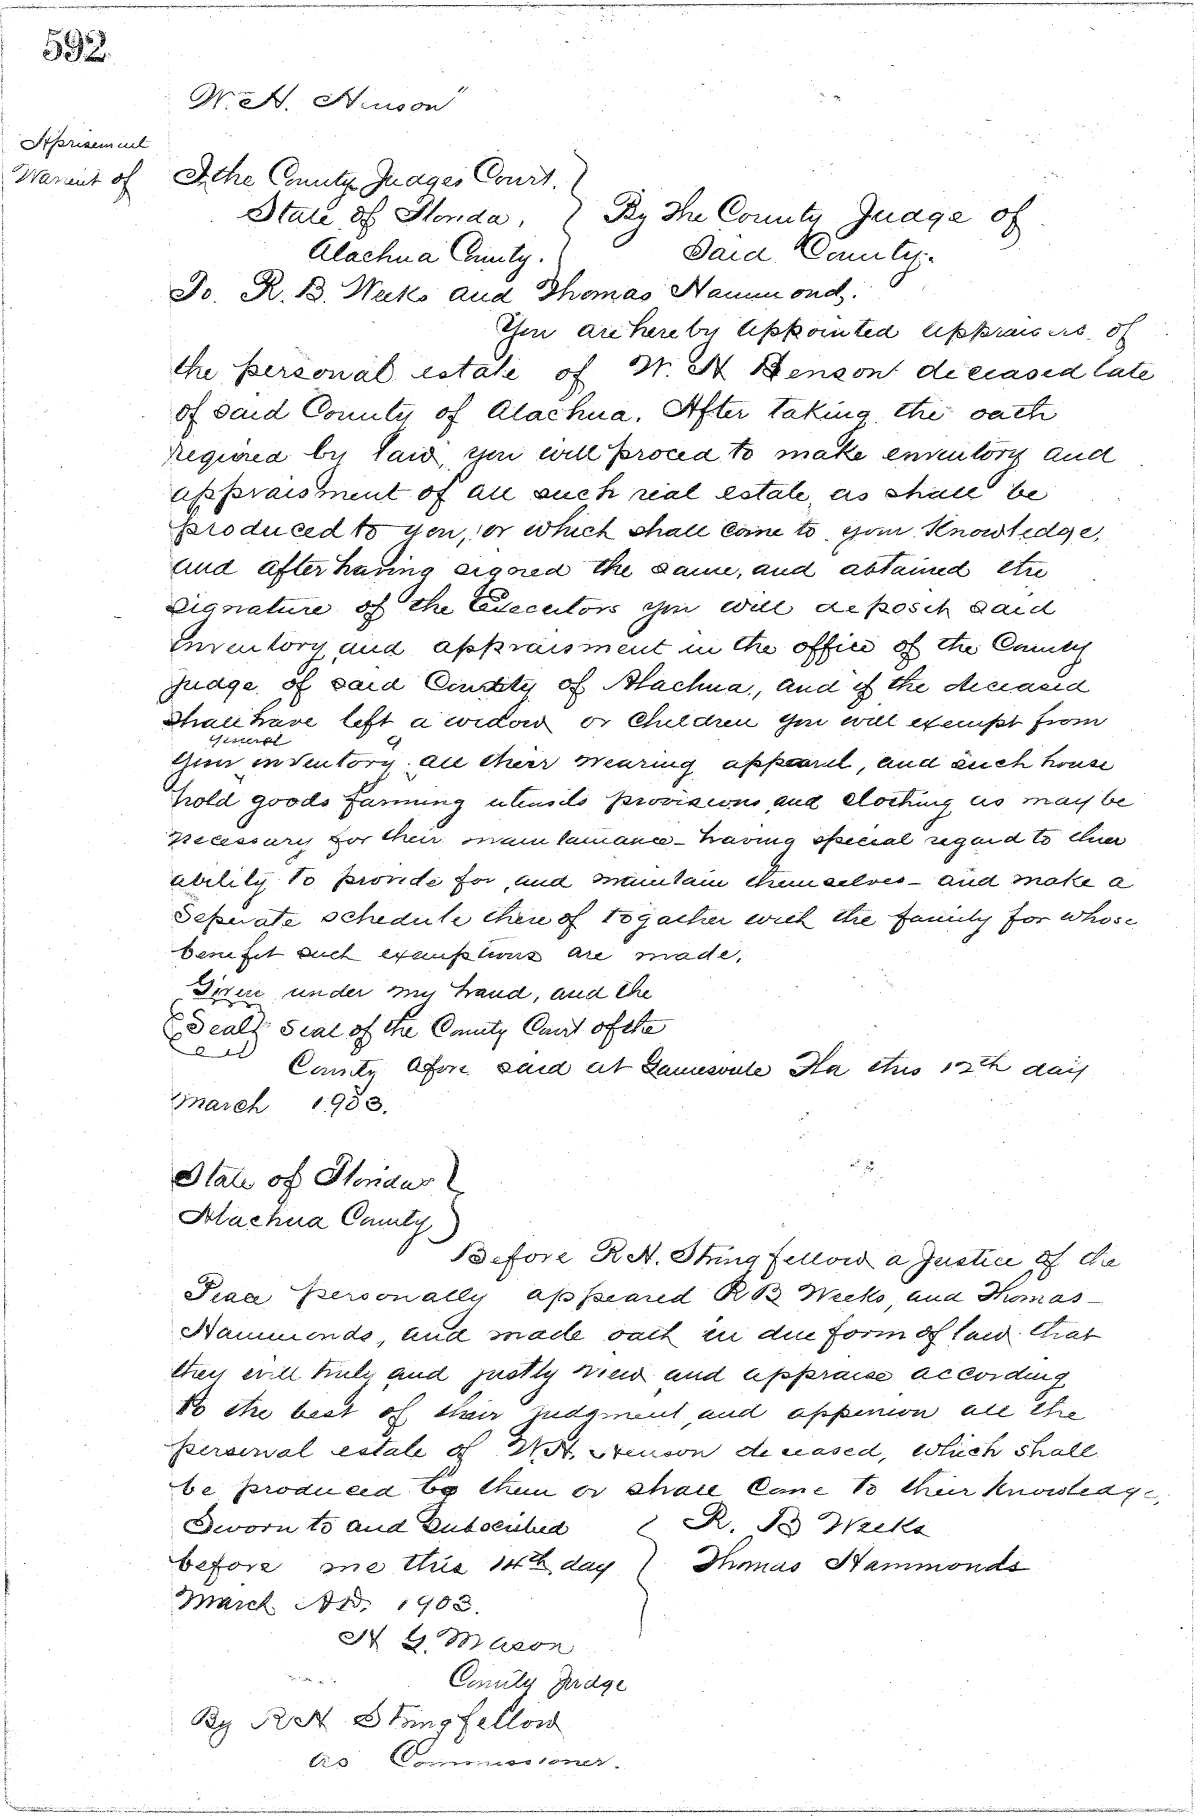 592
W. H. Hinson"
Aprisement
Warrent of
In the County Judges Court.
State of Florida,
By The County Judge of
Alachua County.
Said County.
To. R. B. Weeks and Thomas Hammond.
You are hereby appointed appraisers of
the personal estate of W. H Henson deceased late
of said County of Alachua. After taking the oath
required by law, you will proced to make enventory and
appraisment of all such real estate, as shall be
produced to you, or which shall come to your Knowledge,
and after having signed the same, and abtained the
signature of the Executors you will deposit said
inventory and appraisment in the office of the County
Judge of said County of Alachua, and if the deceased
shall have left a widow or children you will exempt from
General
your inventory all their wearing apparel, and such house
hold goods farming utensils provisions and clothing as may be
necessary for their maintainance - having special regard to thier
ability to provide for, and maintain themselves - and make a
Seperate schedule there of togather with the family for whose
benefit such exemptions are made.
Given under my hand, and the
Seal Seal of the County Court of the
County afore said at Gainesville Fla this 12th day
March 1903.
State of Florida
Alachua County
Before R H. Stringfellow a Justice of the
Peace personally appeared R B Weeks, and Thomas -
Hammonds, and made oath in due form of law that
they will truly and justly view and appraise according
to the best of their judgment, and oppinion all the
personal estate of W. H. Henson deceased, which shall
be produced to them or shall Come to their knowledge,
Sworn to and Subscribed
R. B Weeks
before me this 14th day
Thomas Hammonds
March AD. 1903.
H G. Mason
County Judge
By R H Stringfellow
as Commissioner.